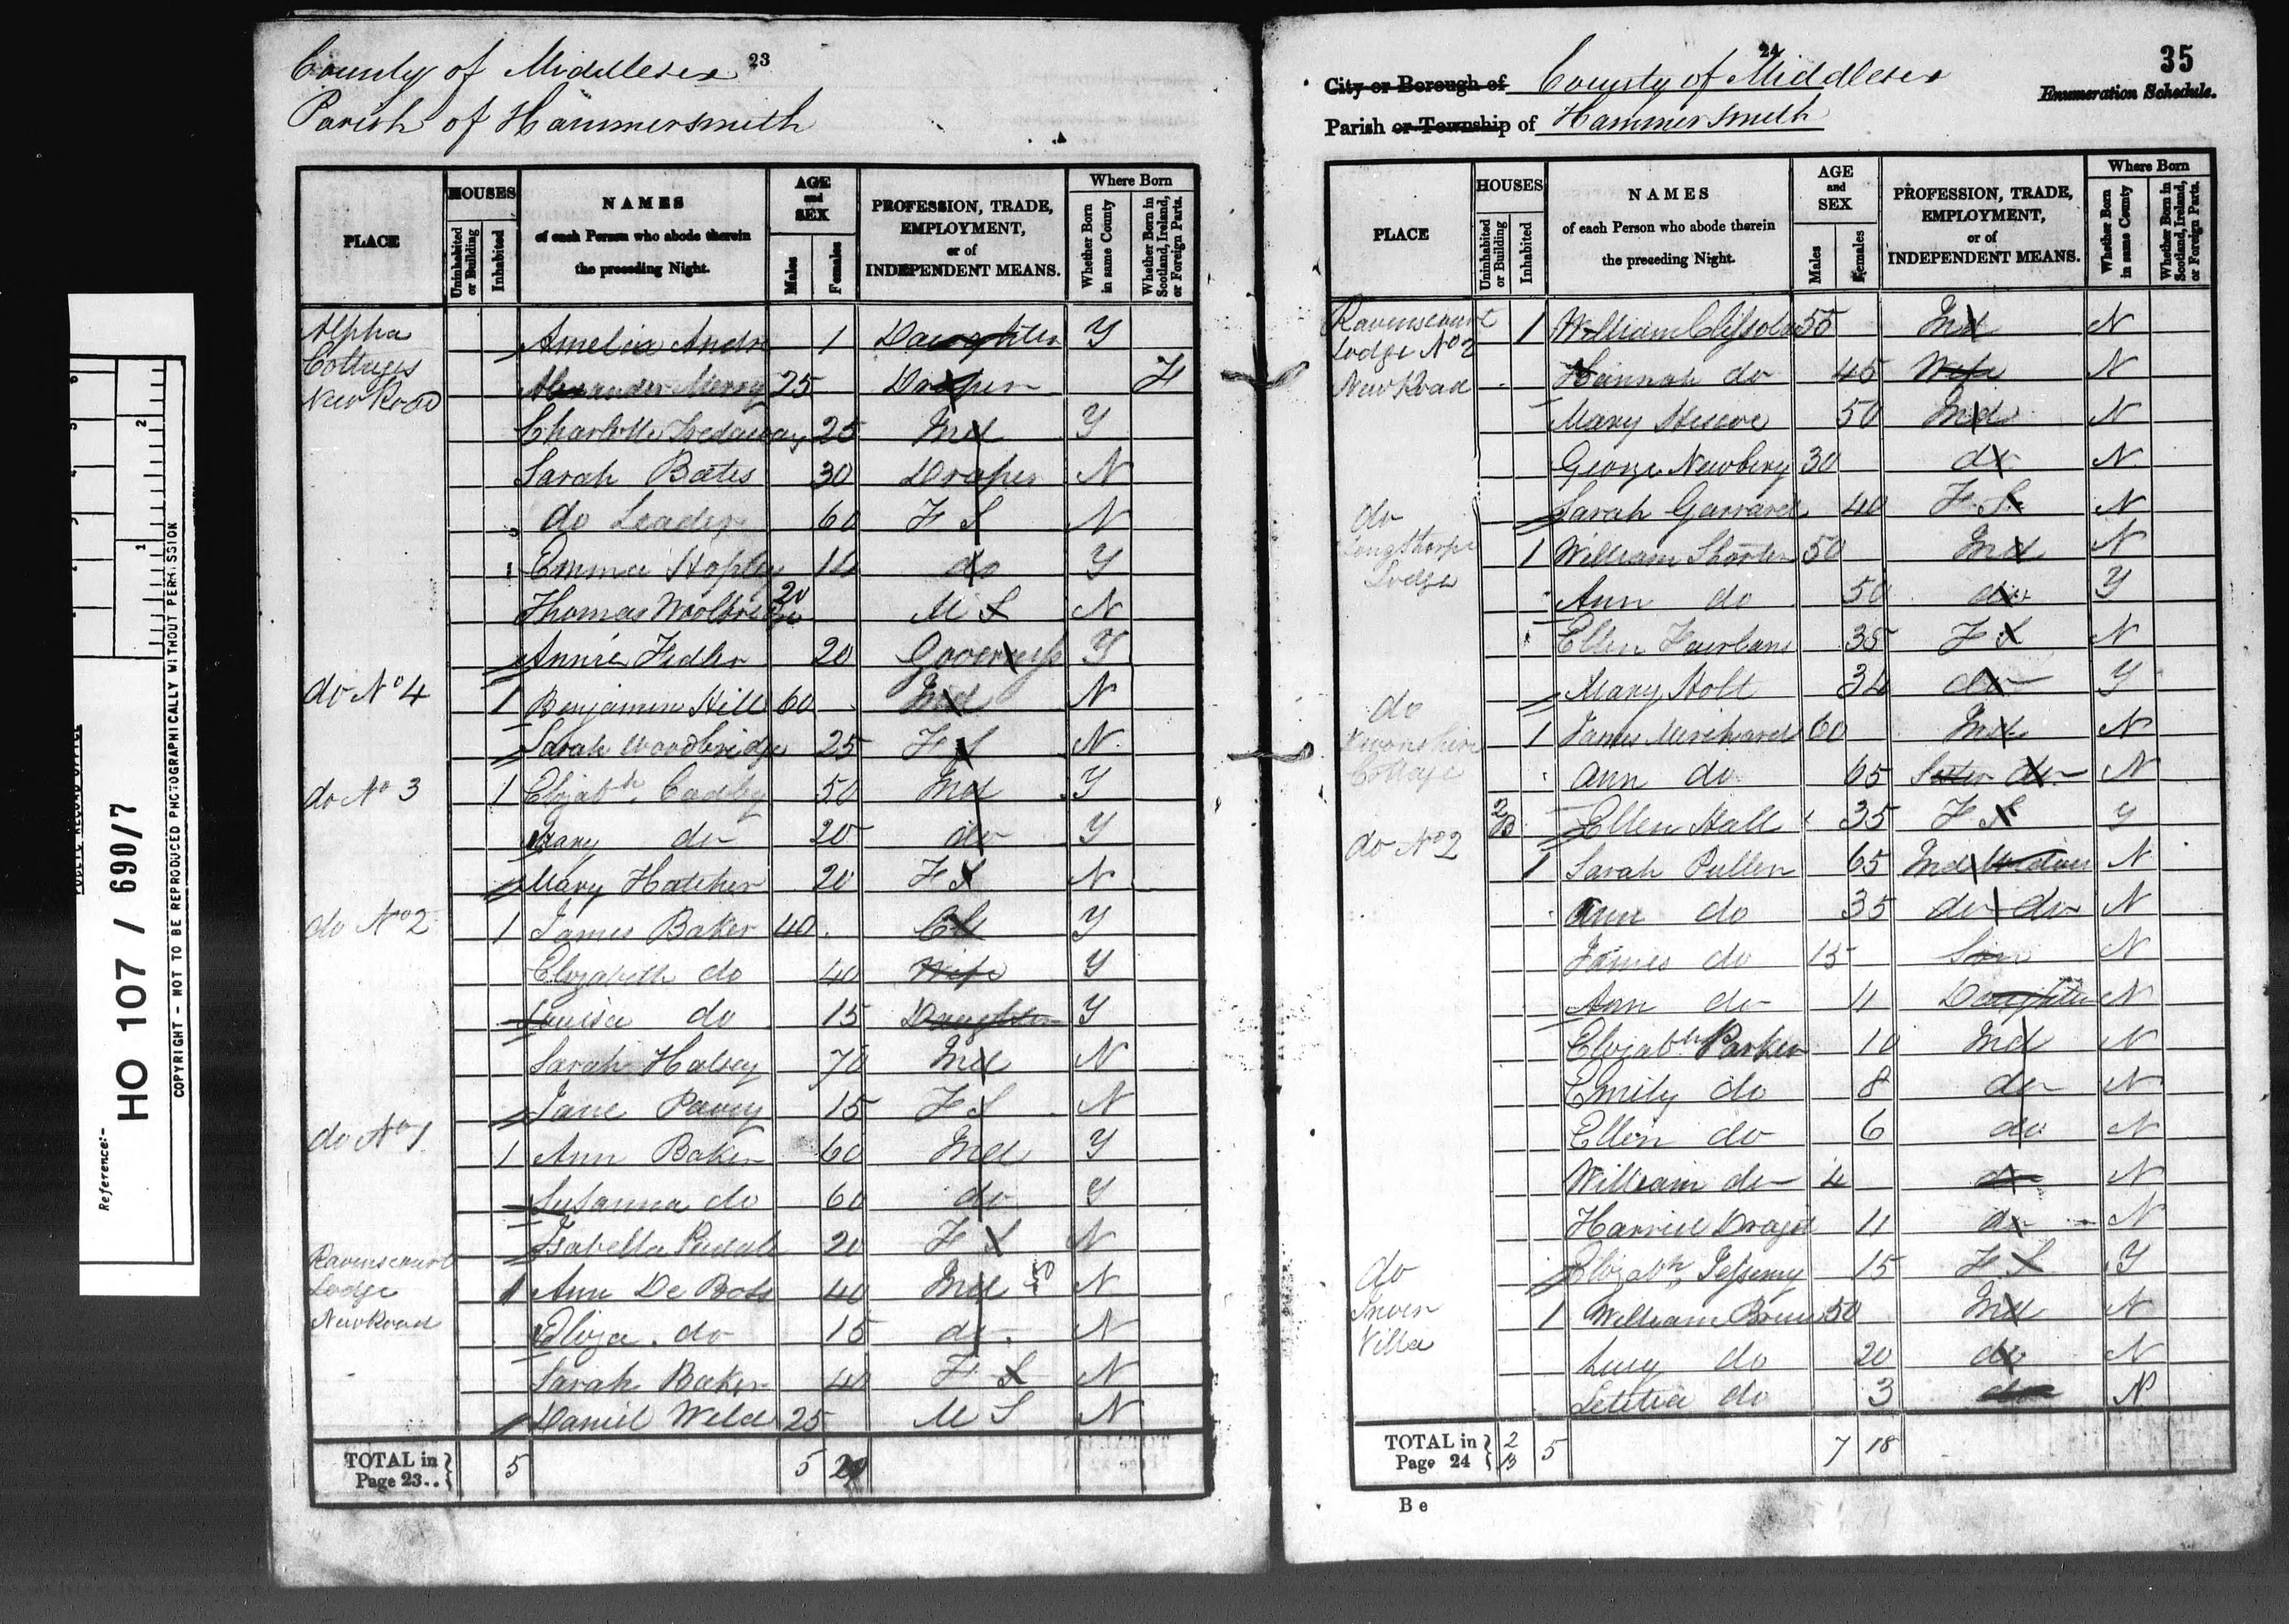 County of Middlesex 23
Parish of Hammersmith
PLACE HOUSES Uninhabited or Building Inhabited NAMES of each Person who abode therein the preceding Night. AGE and SEX Males Females PROFESSION, TRADE, EMPLOYMENT, or of INDEPENDENT MEANS. Where Born Whether Born in same County Whether Born in Scotland, Ireland, or Foreign Parts.
Alpha Cottages New Road
Amelia Andr 1 Daughter Y
Alexander Merry 25 Draper F
Charlotte 25 Ind Y
Sarah Bates 30 Draper N
do Leader 60 F S N
Emma Hopley 14 do Y
Thomas 20 M S N
Annie Fidler 20 Governess Y
do No 4 1 Benjamin Hill 60 Ind N
Sarah Woodbridge 25 F S N
do No 3 1 Elizabth Cadby 50 Ind Y
Mary do 20 do Y
Mary Hatcher 20 F S N
do No 2 1 James Baker 40 Clk Y
Elizabeth do 40 Wife Y
Louisa do 15 Daughter Y
Sarah Halsey 70 Ind N
Jane Pavey 15 F S N
do No 1 1 Ann Baker 60 Ind Y
Susanna do 60 do Y
Isabella 20 F S N
Ravenscourt Lodge New Road 1 Ann De Boss 40 Ind N
Eliza do 15 do N
Sarah Baker 40 F S N
Daniel Weld 25 M S N
TOTAL in Page 23.. 5 5 20
24
35
City or Borough of County of Middlesex
Enumeration Schedule.
Parish or Township of Hammersmith
PLACE HOUSES Uninhabited or Building Inhabited NAMES of each Person who abode therein the preceding Night. AGE and SEX Males Females PROFESSION, TRADE, EMPLOYMENT, or of INDEPENDENT MEANS. Where Born Whether Born in same County Whether Born in Scotland, Ireland, or Foreign Parts.
Ravenscourt Lodge No 2 New Road 1 William 55 Ind N
Hannah do 45 Wife N
Mary 50 Ind N
George Newbery 30 do N
Sarah Garrard 40 F S N
do Longthorpe Lodge 1 William Shorter 50 Ind N
Ann do 50 do Y
Ellen 35 F S N
Mary Holt 34 do Y
do Devonshire Cottage 1 James 60 Ind N
Ann do 65 Sister do N
2 B Ellen Hall 35 F S Y
do No 2 1 Sarah Pullen 65 Ind Widow N
Ann do 35 do do N
James do 15 Son N
Ann do 11 Daughter N
Elizabth Parker 10 Ind N
Emily do 8 do N
Ellen do 6 do N
William do 4 do N
Harriet 11 do N
Elizabth 15 F S Y
do Inver Villa 1 William 50 Ind N
Lucy do 20 do N
Letitia do 3 do N
TOTAL in Page 24 2 B 5 7 18
B e
Reference:-
HO 107 / 690/7
COPYRIGHT - NOT TO BE REPRODUCED PHOTOGRAPHICALLY WITHOUT PERMISSION
PUBLIC RECORD OFFICE
1 2